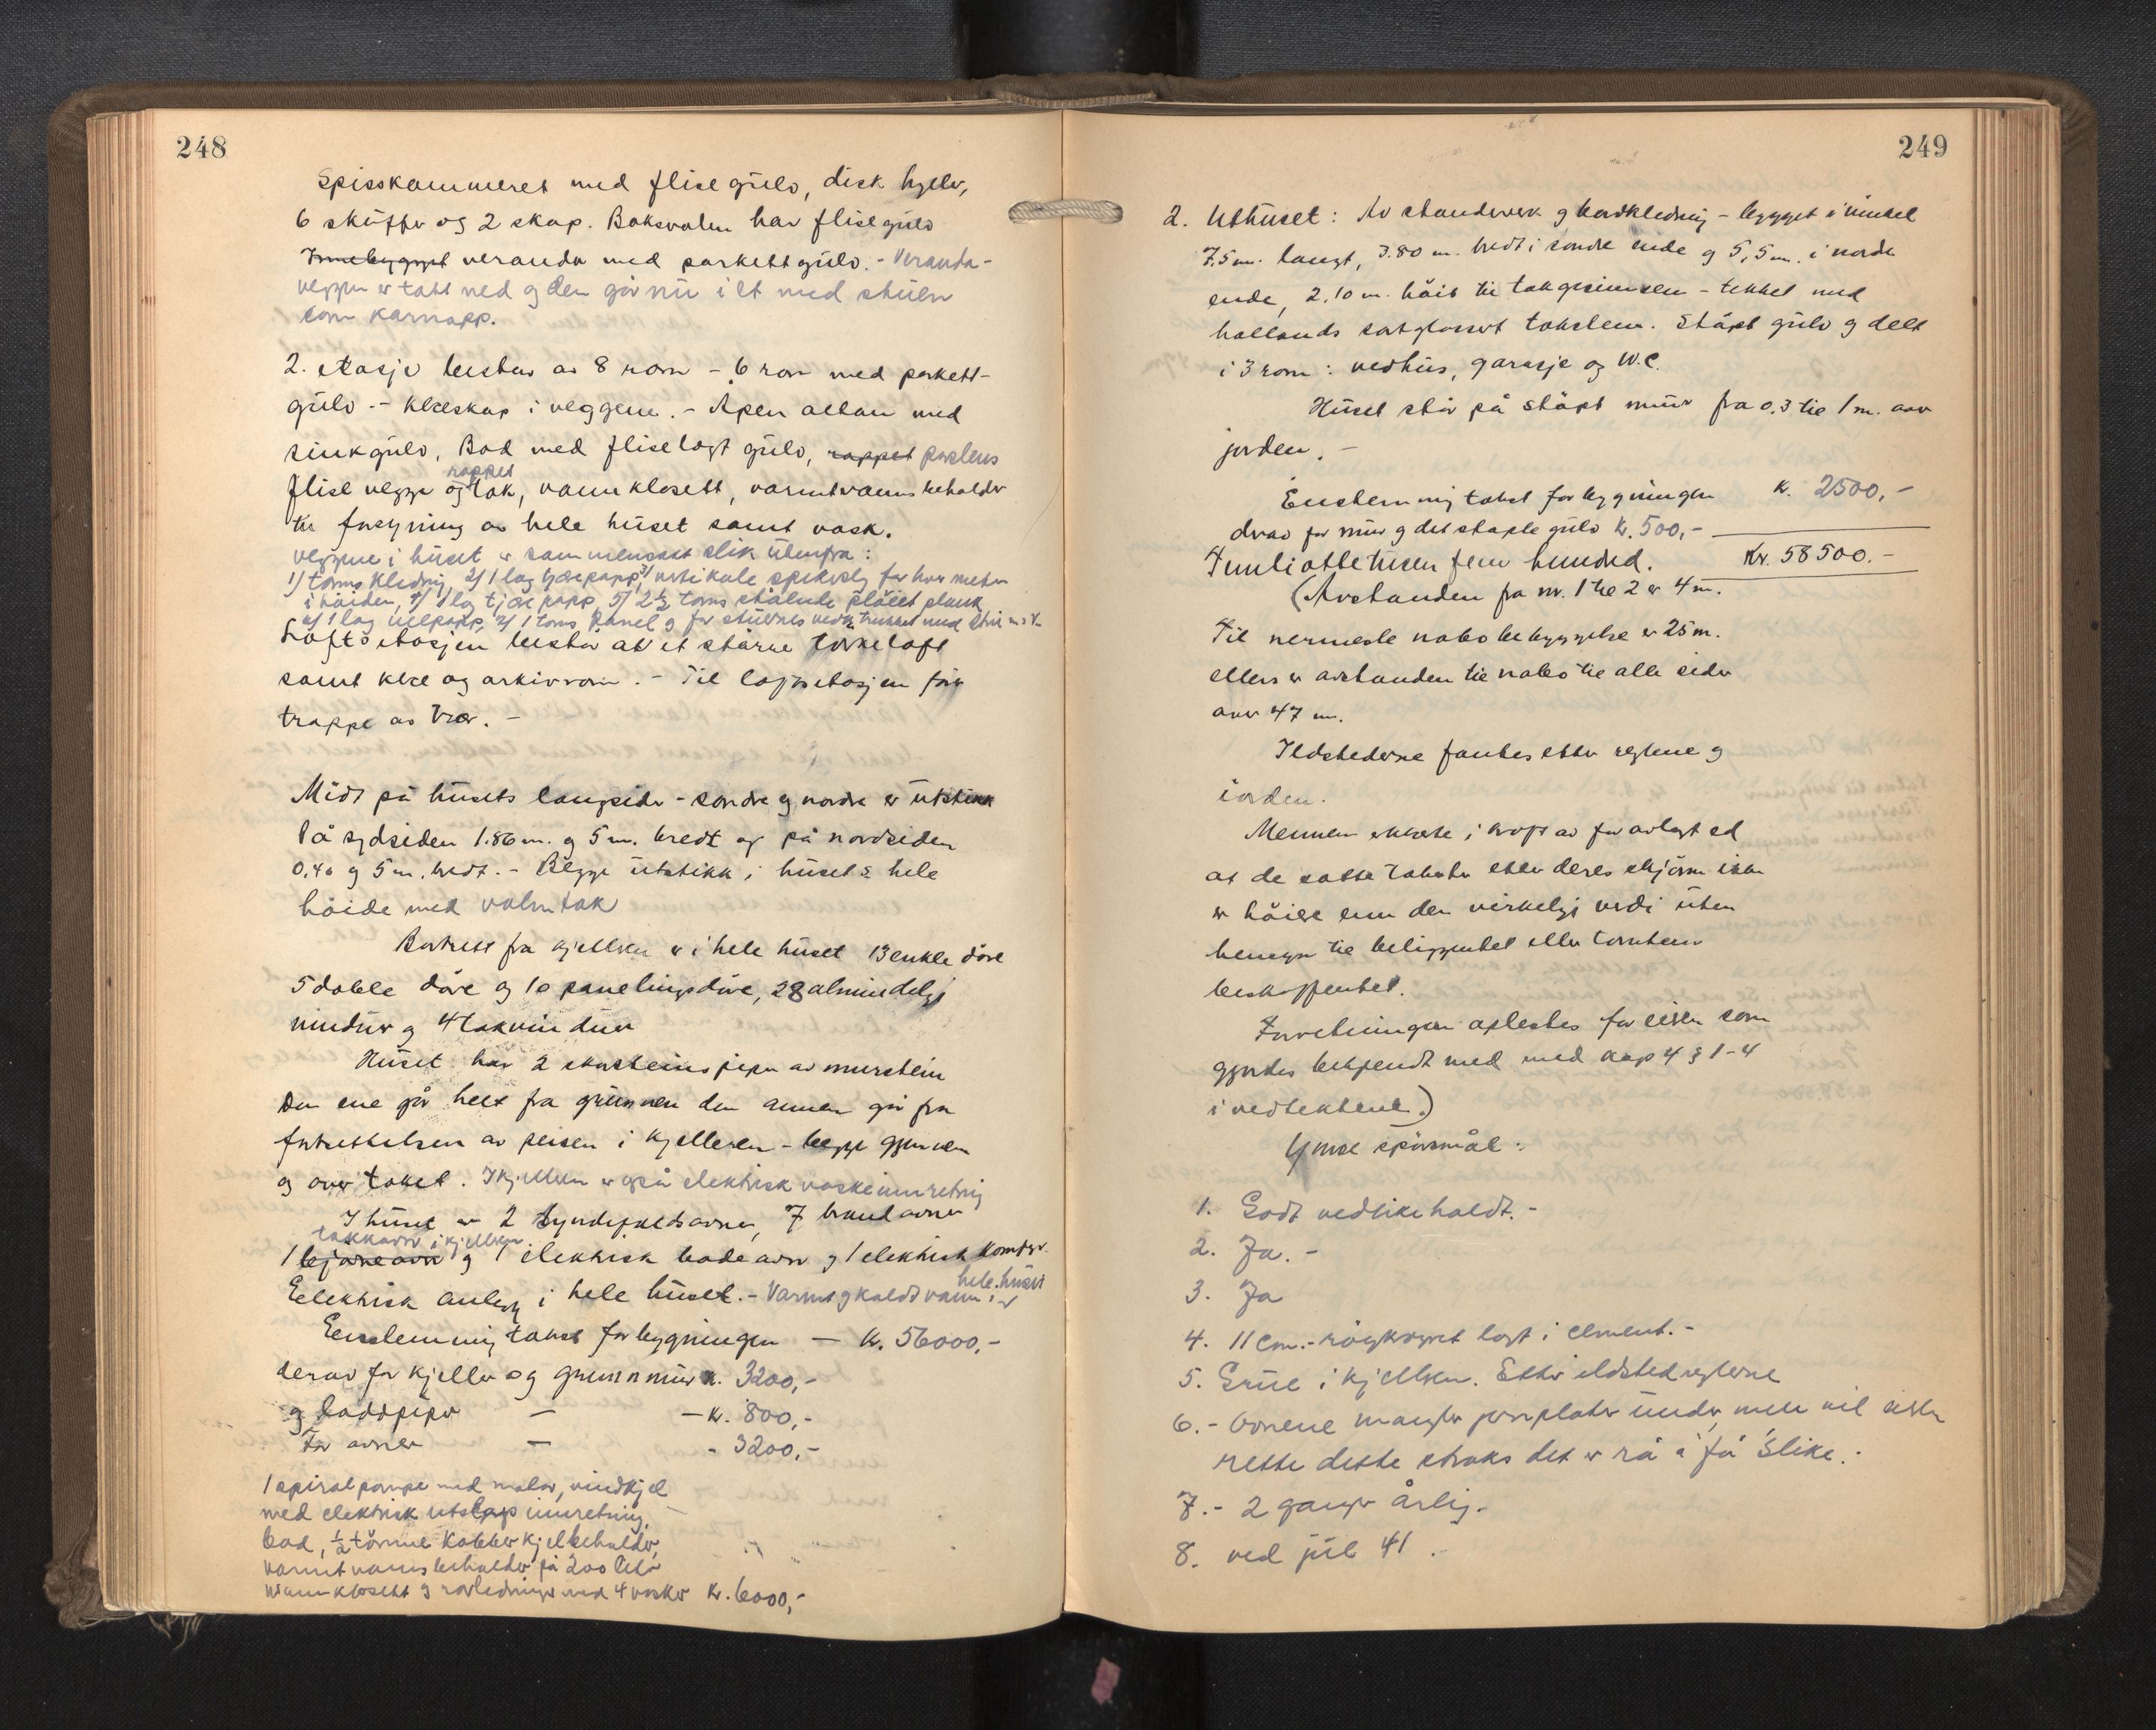 248
Spisskammeret med flisegulv, disk hyller,
6 skuffer og 2 skap. Baksvalen har flisegulv
Innebygget veranda med parkettgulv. - Veranda-
veggen er tatt ned og den går nu i ett med stuen
som karnapp.
2. Etasje består av 8 rom - 6 rom med parkett-
gulv. - Klæskap i veggene. - Åpen altan med
sinkgulv, Bad med fliselagt gulv, rappet porslens
flise vegge og rappet tak, vannklosett, varmtvannsbeholder
til forsyning av hele huset samt vask.
veggene i huset er sammensatt slik utenfra:
1) toms kledning, 2) 1 lag tjærepapp, 3) vertikale spikerslag for hver meter
i höiden, 4) 1 lag tjære papp 5) 2½ toms stående plöiet plank
6) 1 lag ullpapp, 7) 1 toms panel og for stuenes vedk. trukket med strie
Loftsetasjen består av et större törkeloft
samt klæ og arkivrom. - Til loftsetasjen förer
trappe av træ. -
Midt på husets langsider - söndre og nordre er utstikk
På sydsiden 1.86 m. og 5 m. bredt og på nordsiden
0.40 og 5 m. bredt. - Begge utstikk i husets hele
höide med valmtak
Bortsett fra kjelleren er i hele huset 13 enkle döre
5 doble döre og 10 panelingsdöre, 28 almindelige
vinduer og 4 takvinduer
Huset har 2 skorsteinspiper av murstein
Den ene går helt fra grunnen den annen går fra
fortsettelsen av peisen i kjelleren - begge gjennem
og over taket. I kjelleren er også elektrisk vaskeinnretning
I huset er 2 tyndeplatsovner, 7 brandovner
takkovn i kjelleren
1 bjørneovn og 1 elektrisk badeovn og 1 elektrisk komfyr.
Elektrisk anlegg i hele huset. - Varmt og kaldt vann i hele huset
Enstemmig takst for bygningen — Kr. 56000,-
derav for kjeller og grunnmur kr. 3200,-
og ladd piper — - Kr. 800,-
For ovner — - 3200,-
1 spiralpumpe med motor, vindkjel
med elektrisk utslags innretning,
bad, ½ tömme kobber kjelbeholder,
varmtvannsbeholder på 200 liter
vannklosett og rörledninger med 4 vasker Kr. 6000,-
249
2. Uthuset: Av standerverk og bordkledning - bygget i vinkel
7.5 m. langt, 3.80 m. bredt i söndre ende og 5,5 m. i nordre
ende, 2,10 m. höit til takgesimsen - tekket med
hollandsk sortglassert taksten. Stöpt gulv og delt
i 3 rom: vedhus, garasje og W.C.
Huset står på stöpt mur fra 0.3 til 1 m. over
jorden. -
Enstemmig takst for bygningen Kr. 2500,-
derav for mur og det stöpte gulv Kr. 500,-
Femtiottetusen fem hundred. Kr. 58500.-
(Avstanden fra nr. 1 til 2 er 4 m.
Til nermeste nabobebyggelse er 25 m.
ellers er avstanden til nabo til alle sider
over 47 m.
Ildstederne fantes etter reglene og
i orden.
Mennene erklærte i kraft av før avlagt ed
at de satte takster etter deres skjönn ikke
er höiere enn den virkelige verdi uten
hensyn til beliggenhet eller tomtens
beskaffenhet.
Forretningen oplestes for eieren som
gjordes bekjendt med med kap 4 § 1-4
i vedtektene.)
Ymse spörsmål:
1. Godt vedlikeholdt. -
2. Ja. -
3. Ja
4. 11 cm. - röykröret lagt i cement. -
5. Grue i kjelleren. Etter ildstedreglerne
6. - Ovnene mangler jernplater under, men vil eieren
rette dette straks det er rå å få slike. -
7. - 2 ganger årlig.
8. ved jul 41.